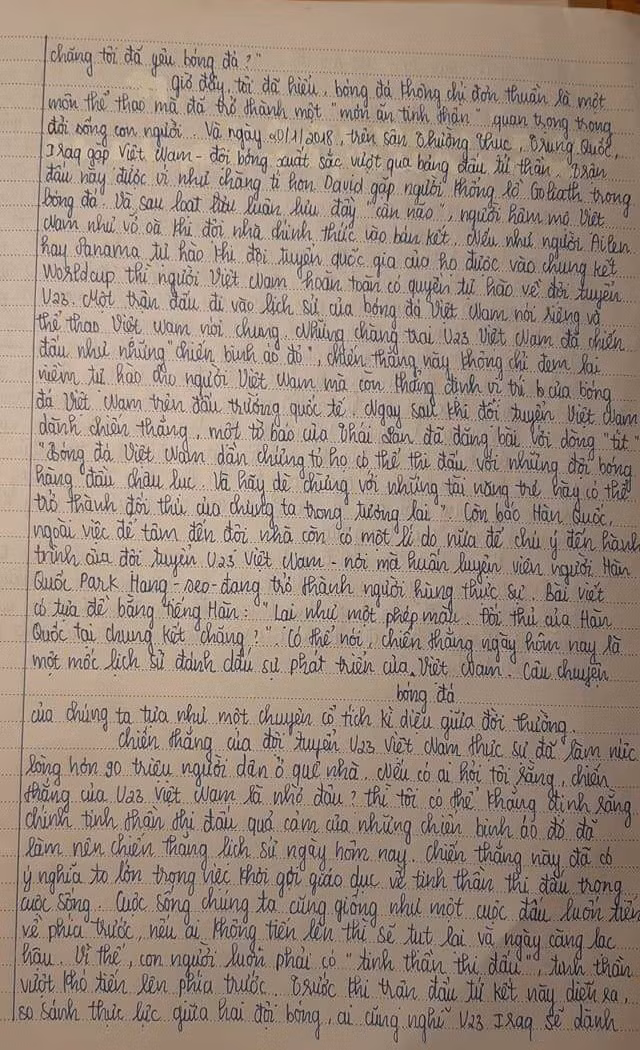 chăng tôi đã yêu bóng đá?"
giờ đây, tôi đã hiểu, bóng đá không chỉ đơn thuần là một
môn thể thao mà đã trở thành một "món ăn tinh thần" quan trọng trong
đời sống con người. Và ngày 20/1/2018, trên sân Thường Thục, Trung Quốc,
Iraq gặp Việt Nam - đội bóng xuất sắc vượt qua bảng đấu tử thần. Trận
đấu này được ví như chàng tí hon David gặp người khổng lồ Goliath trong
bóng đá. Và sau loạt luân lưu đầy "cân não", người hâm mộ Việt
Nam như vỡ oà khi đội nhà chính thức vào bán kết. Nếu như người Ailen
hay Panama tự hào khi đội tuyển quốc gia của họ được vào chung kết
Worldcup thì người Việt Nam hoàn toàn có quyền tự hào về đội tuyển
U23. Một trận đấu đi vào lịch sử của bóng đá Việt Nam nói riêng và
thể thao Việt Nam nói chung. Những chàng trai U23 Việt Nam đã chiến
đấu như những "chiến binh áo đỏ", chiến thắng này không chỉ đem lại
niềm tự hào cho người Việt Nam mà còn khẳng định vị trí của bóng
đá Việt Nam trên đấu trường quốc tế. Ngay sau khi đội tuyển Việt Nam
dành chiến thắng, một tờ báo của Thái Lan đã đăng bài với dòng "tít"
"Bóng đá Việt Nam dần chứng tỏ họ có thể thi đấu với những đội bóng
hàng đầu châu lục. Và hãy dè chừng với những tài năng trẻ này có thể
trở thành đối thủ của chúng ta trong tương lai". Còn báo Hàn Quốc,
ngoài việc để tâm đến đội nhà còn có một lí do nữa để chú ý đến hành
trình của đội tuyển U23 Việt Nam - nơi mà huấn luyện viên người Hàn
Quốc Park Hang-seo-đang trở thành người hùng thực sự. Bài viết
có tựa đề bằng tiếng Hàn: "Lại như một phép màu. Đối thủ của Hàn
Quốc tại chung kết chăng?". Có thể nói, chiến thắng ngày hôm nay là
một mốc lịch sử đánh dấu sự phát triển của Việt Nam. Câu chuyện
bóng đá
của chúng ta tựa như một chuyện cổ tích kì diệu giữa đời thường.
chiến thắng của đội tuyển U23 Việt Nam thực sự đã làm nức
lòng hơn 90 triệu người dân ở quê nhà. Nếu có ai hỏi tôi rằng, chiến
thắng của U23 Việt Nam là nhờ đâu? thì tôi có thể khẳng định rằng
chính tinh thần thi đấu quả cảm của những chiến binh áo đỏ đã
làm nên chiến thắng lịch sử ngày hôm nay. Chiến thắng này đã có
ý nghĩa to lớn trong việc khơi gợi giáo dục về tinh thần thi đấu trong
cuộc sống. Cuộc sống chúng ta cũng giống như một cuộc đấu luôn tiến
về phía trước, nếu ai không tiến lên thì sẽ tụt lại và ngày càng lạc
hậu. Vì thế, con người luôn phải có "tinh thần thi đấu", tinh thần
vượt khó tiến lên phía trước. Trước khi trận đấu tứ kết này diễn ra,
so sánh thực lực giữa hai đội bóng, ai cũng nghĩ U23 Iraq sẽ dành